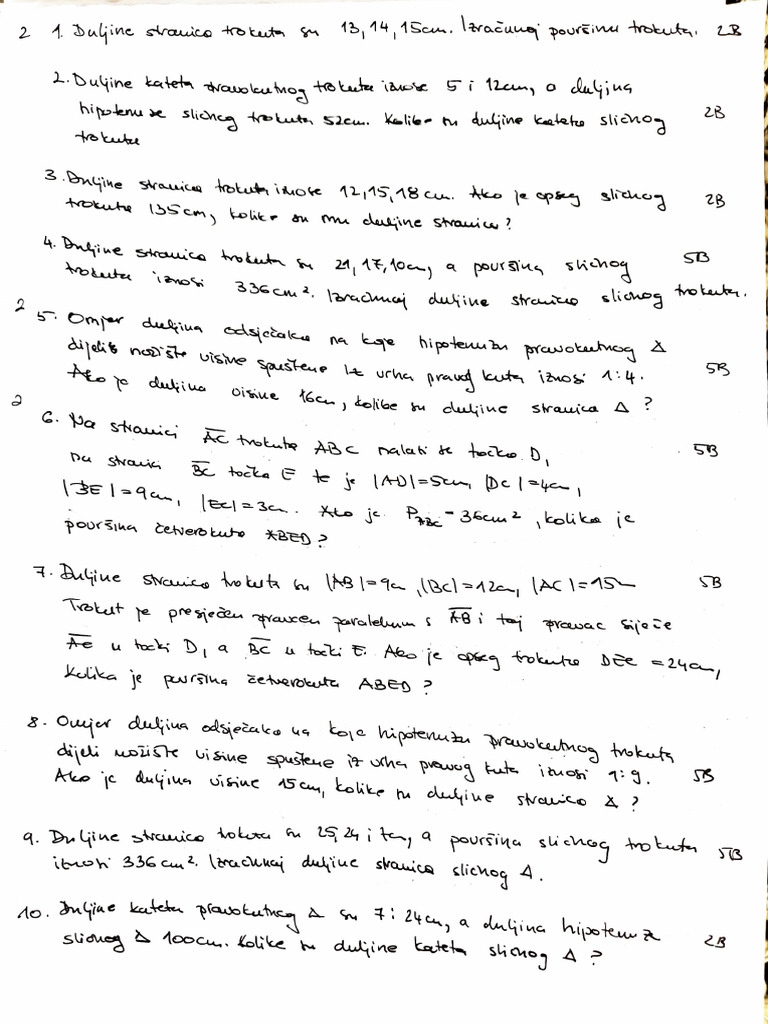 2 1. Duljine stranica trokuta su 13, 14, 15cm. Izračunaj površinu trokuta. 2B
2. Duljine kateta pravokutnog trokuta iznose 5 i 12cm, a duljina
hipotenuze sličnog trokuta 52cm. Kolike su duljine kateta sličnog 2B
trokuta
3. Duljine stranica trokuta iznose 12, 15, 18cm. Ako je opseg sličnog
trokuta 135cm, kolike su mu duljine stranica? 2B
4. Duljine stranica trokuta su 21, 17, 10cm, a površina sličnog 5B
trokuta iznosi 336cm². Izračunaj duljine stranica sličnog trokuta.
2 5. Omjer duljina odsječaka na koje hipotenuzu pravokutnog Δ
dijeli nožište visine spuštene iz vrha pravog kuta iznosi 1:4. 5B
Ako je duljina visine 16cm, kolike su duljine stranica Δ?
2 6. Na stranici AC trokuta ABC nalazi se točka D, 5B
na stranici BC točka E te je |AD|=5cm, |DC|=4cm,
|BE|=9cm, |EC|=3cm. Ako je P_ABC=36cm², kolika je
površina četverokuta ABED?
7. Duljine stranica trokuta su |AB|=9cm, |BC|=12cm, |AC|=15cm 5B
Trokut je presječen pravcem paralelnim s AB i taj pravac siječe
AC u točki D, a BC u točki E. Ako je opseg trokuta DEC =24cm,
kolika je površina četverokuta ABED?
8. Omjer duljina odsječaka na koje hipotenuzu pravokutnog trokuta
dijeli nožište visine spuštene iz vrha pravog kuta iznosi 1:9. 5B
Ako je duljina visine 15cm, kolike su duljine stranica Δ?
9. Duljine stranica trokuta su 25, 24 i 7cm, a površina sličnog trokuta 5B
iznosi 336cm². Izračunaj duljine stranica sličnog Δ.
10. Duljine kateta pravokutnog Δ su 7 i 24cm, a duljina hipotenuze
sličnog Δ 100cm. Kolike su duljine kateta sličnog Δ? 2B